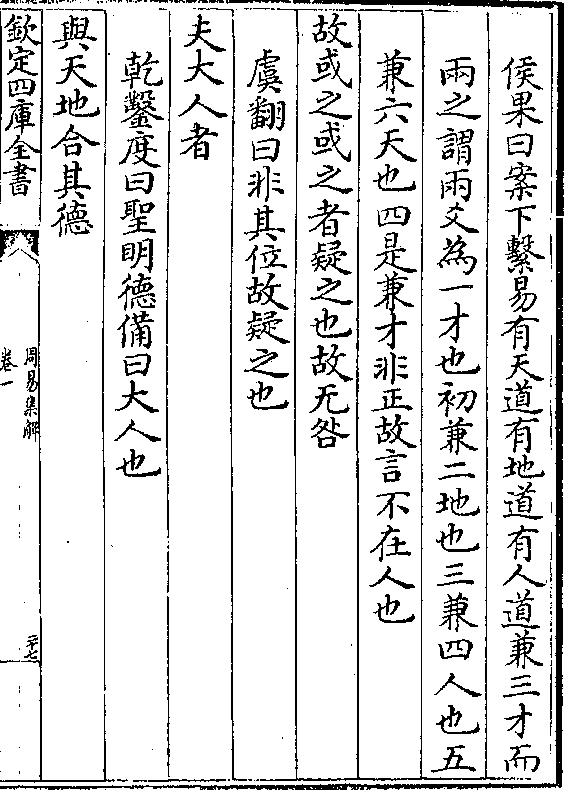 侯果曰案下繫易有天道有地道有人道兼三才而
兩之謂兩爻為一才也初兼二地也三兼四人也五
兼六天也四是兼才非正故言不在人也
故或之或之者疑之也故无咎
虞翻曰非其位故疑之也
夫大人者
乾鑿度曰聖明德備曰大人也
與天地合其德
欽定四庫全書
周易集解
卷一
三十七